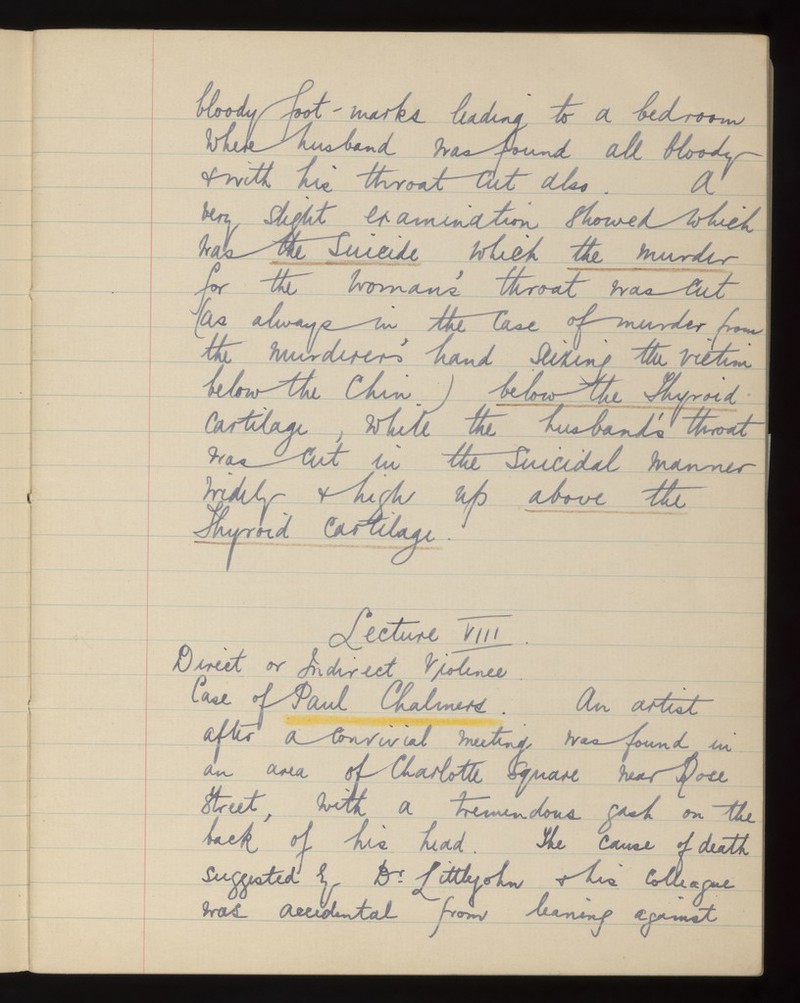 bloody foot-marks leading to a bedroom
where husband was found all bloody
& with his throat cut also. A
very slight examination showed which
was the Suicide which the murder
for the woman's throat was cut
(as always in the case of murder from
the murderers' hand seizing the victim
below the Chin) below the Thyroid
Cartilage, while the husband's throat
was cut in the Suicidal manner
widely & high up above the
Thyroid Cartilage.
Lecture VIII.
Direct or Indirect Violence
Case of Paul Chalmers. An artist
after a convivial meeting was found in
an area of Charlotte Square near Rose
Street, with a tremendous gash on the
back of his head. The cause of death
suggested by Dr. Littlejohn & his Colleague
was accidental from leaning against